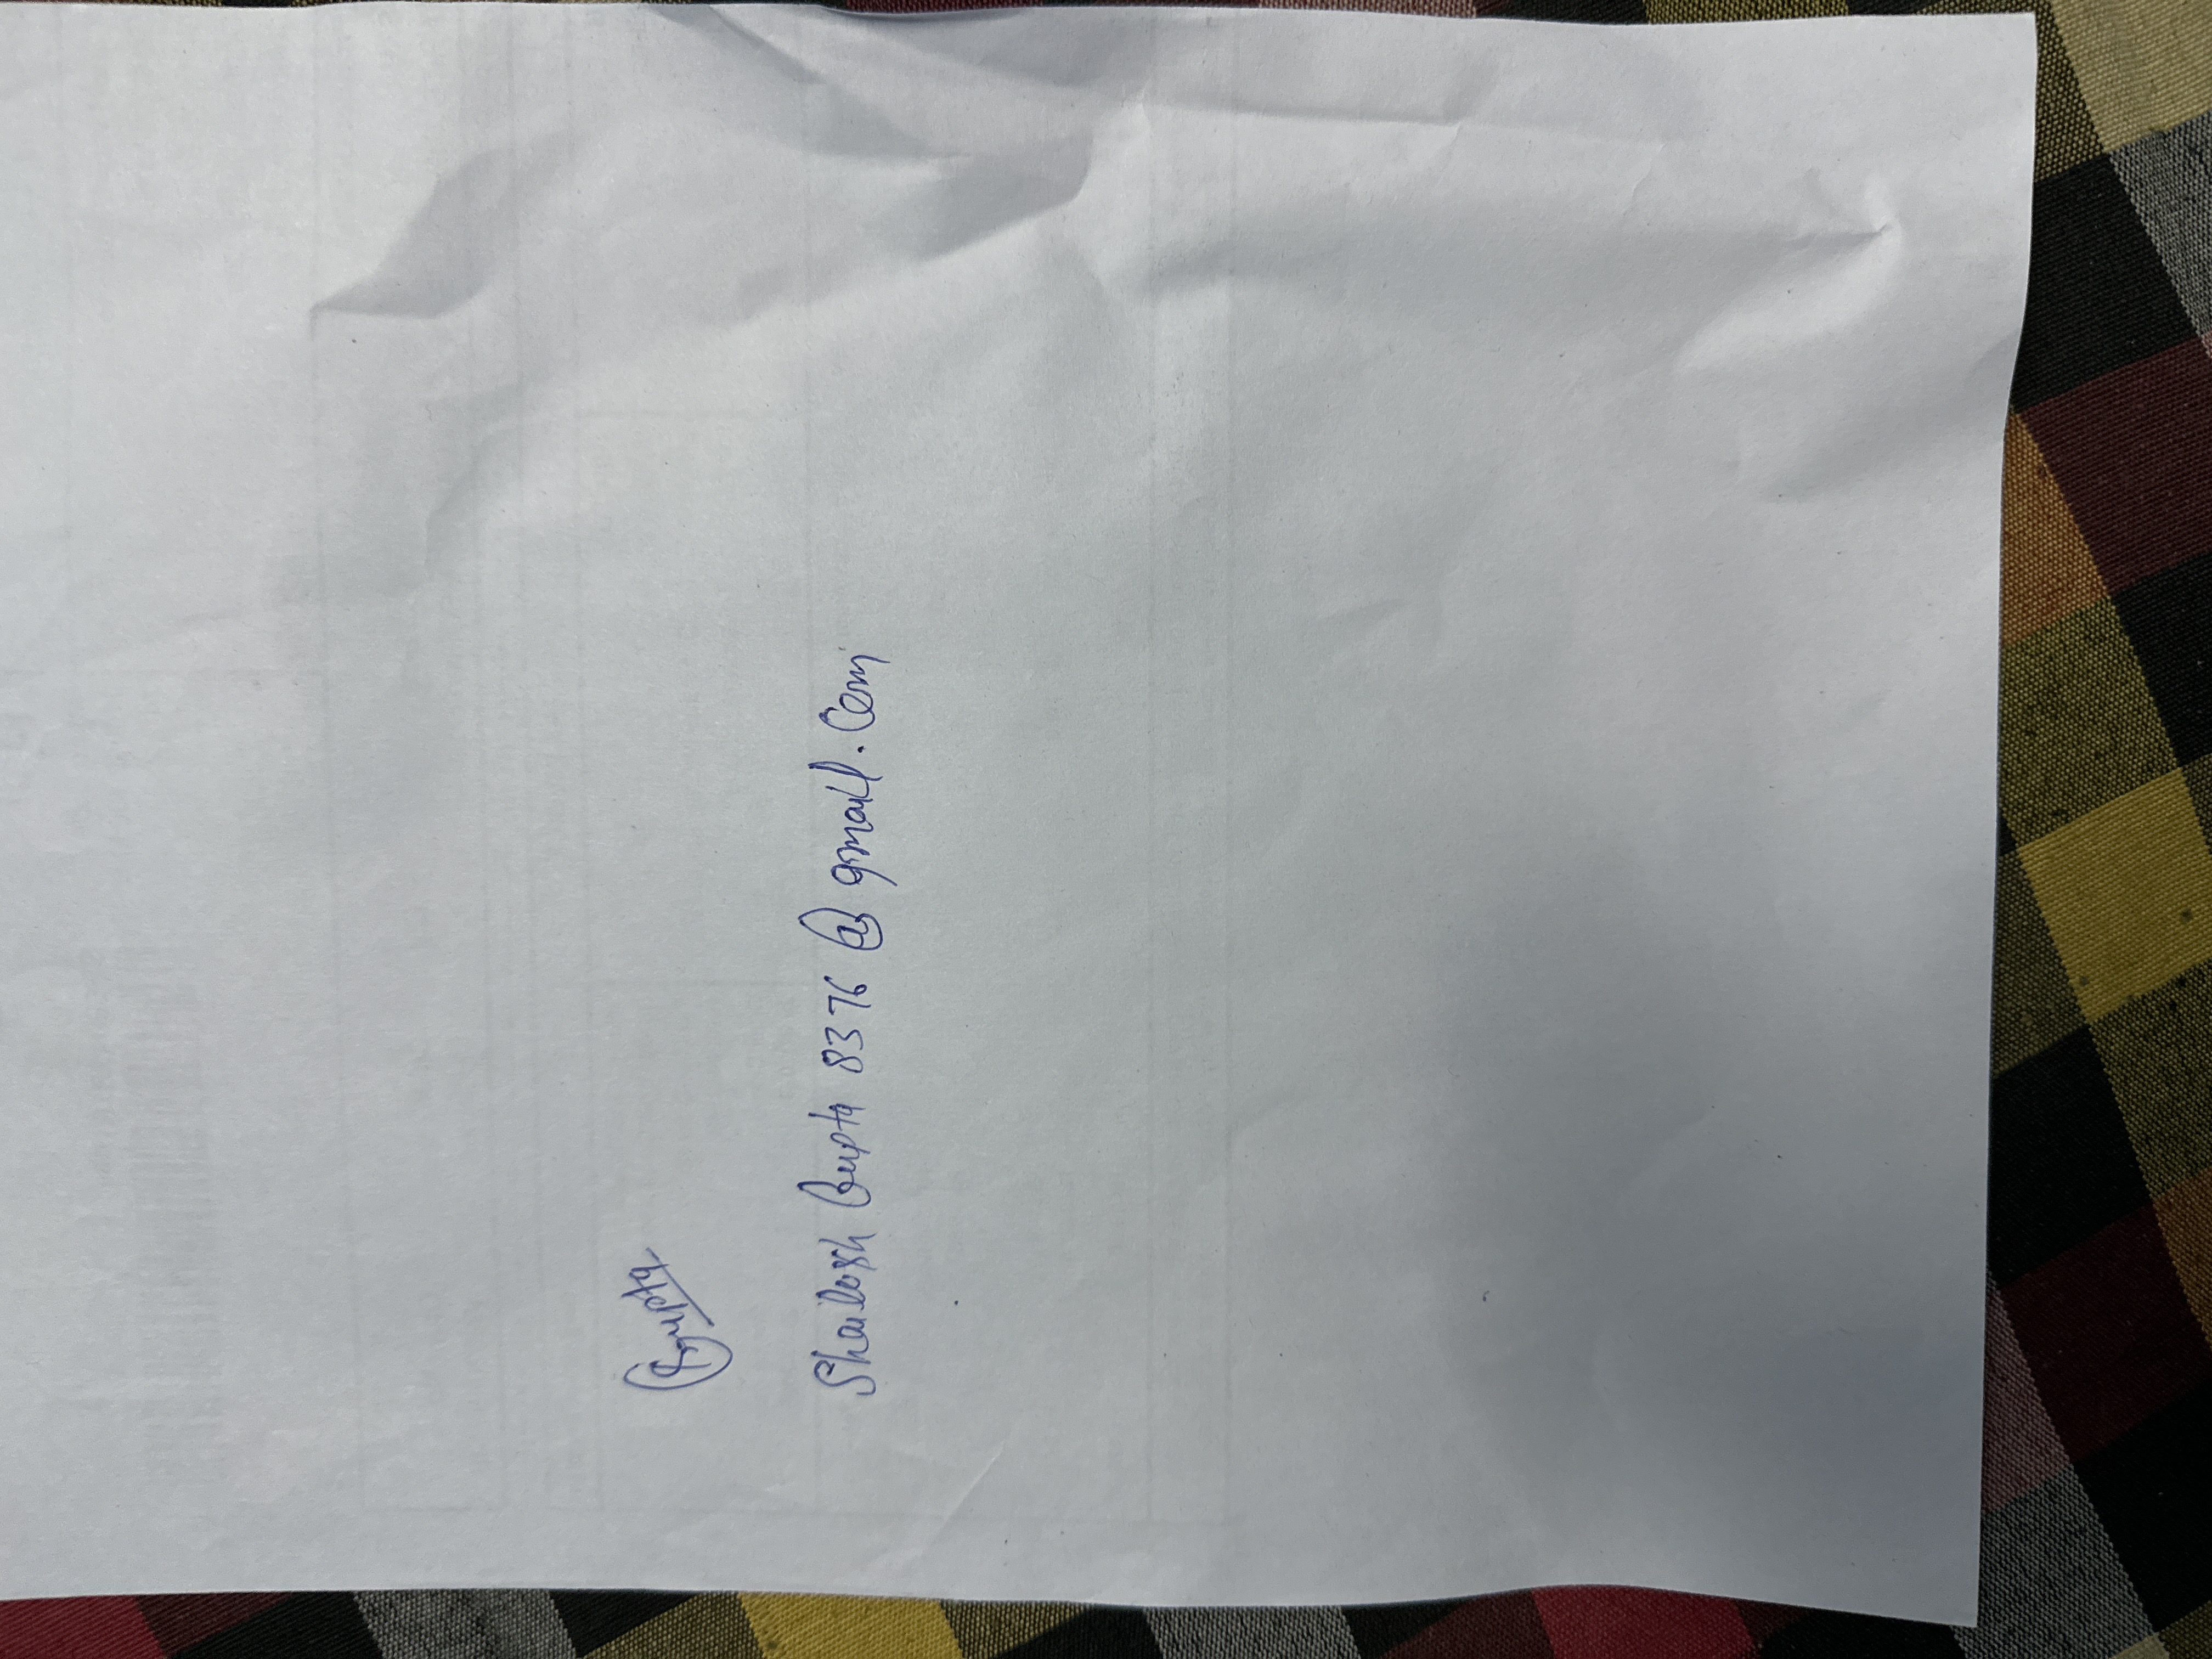 Gupta
Shailesh Gupta 8376 @ gmail.com